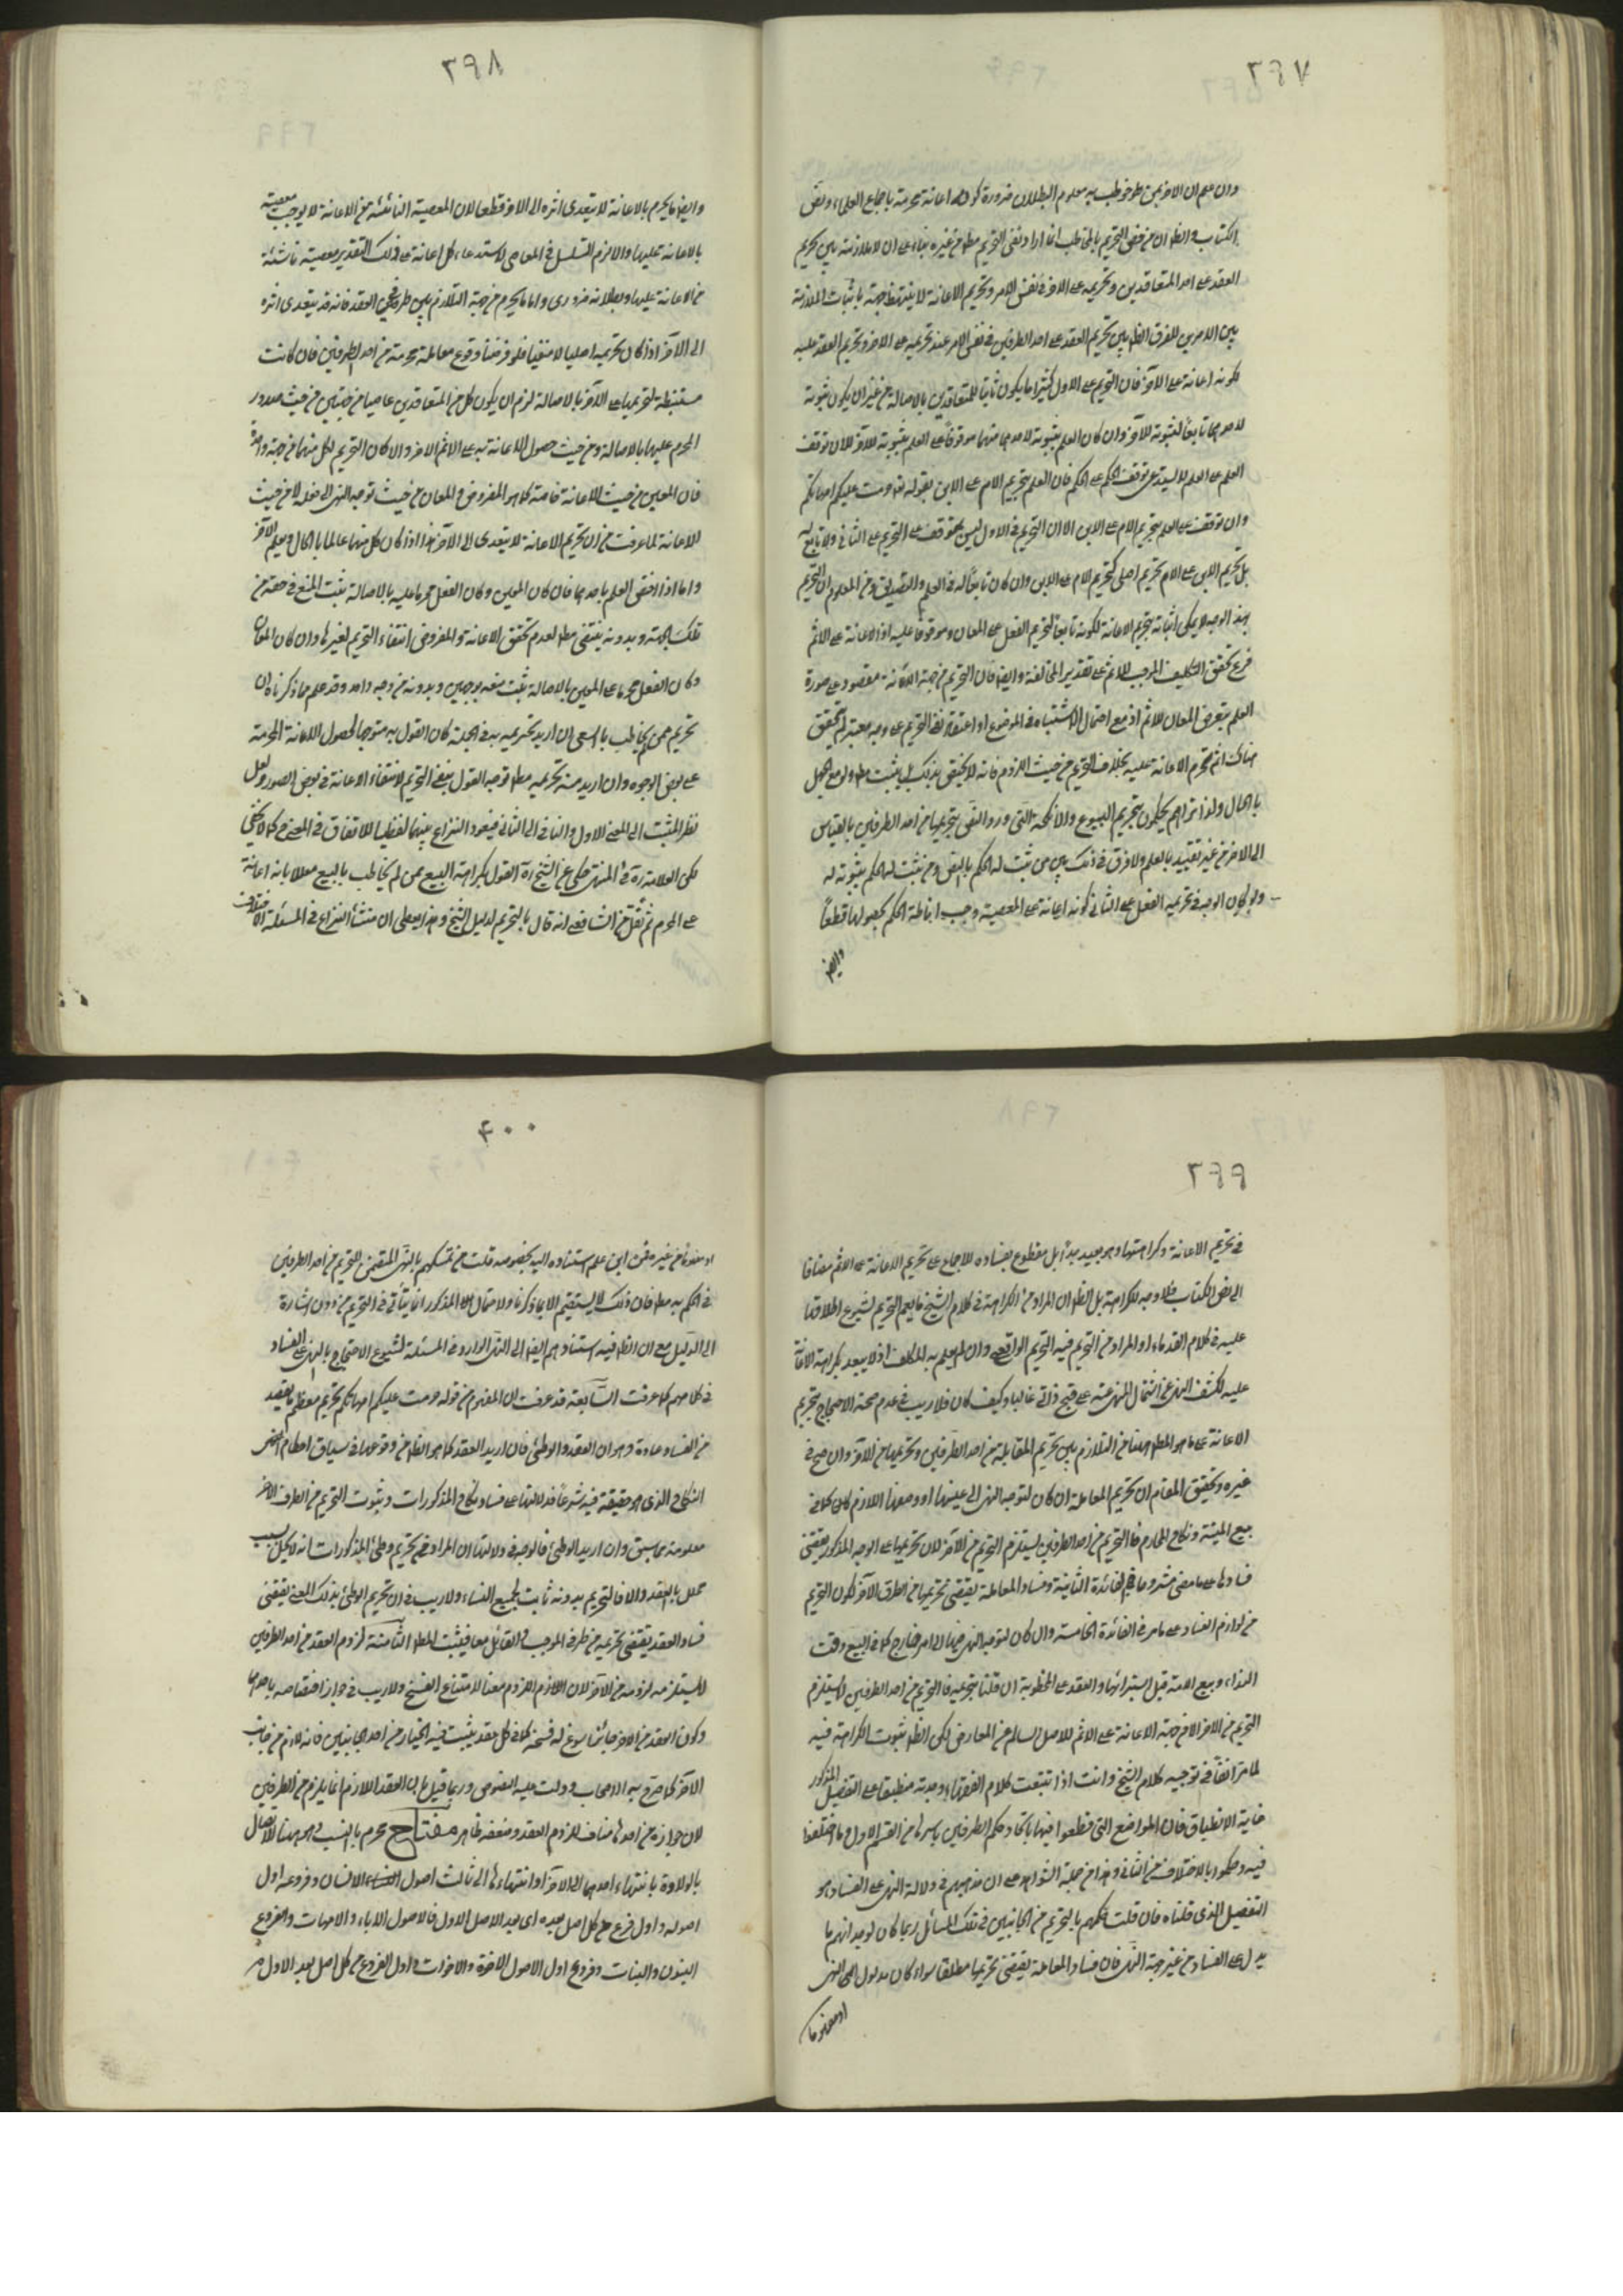 ٣٩٧
وان علم ان الاخر ممن خوطب به معلوم البطلان ضرورة كونه اعانة محرمة باجماع العلماء ونص
الكتاب والظ ان من خص التحريم بالمخاطب انما اراد نفى التحريم مط عن غيره بناء على ان لا ملازمة بين تحريم
العقد على احد المتعاقدين وتحريمه على الاخر فى نفس الامر وتحريم الاعانة لا ينتهض حجة باثبات الملازمة
بين الامرين للفرق الظ بين تحريم العقد على احد الطرفين فى نفس الامر عند تحريمه على الاخر وتحريم العقد عليه
لكونه اعانة على الاخر فان التحريم على الاول كثيرا ما يكون ثابتا للمتعاقدين بالاصالة من غير ان يكون ثبوته
لاحدهما تابعا لثبوته للآخر وان كان العلم بثبوته لاحدهما منهما موقوفا على العلم بثبوته للآخر لان توقف
العلم على العلم لا يستدعى توقف الحكم على الحكم فان العلم بتحريم الام على الابن بقوله تع حرمت عليكم امهاتكم
وان توقف على العلم بتحريم الام على الابن الا ان التحريم فى الاول ليس بمتوقف على التحريم على الثانى ولا تابع له
بل تحريم الابن على الام تحريم اصلى كتحريم الام على الابن وان كان تابعا له فى العلم والتصديق ومن المعلوم ان التحريم
بهذا الوجه لا يمكن اثباته بتحريم الاعانة لكونه تابعا لتحريم الفعل على المعان وموقوفا عليه اذ الاعانة على الاثم
فرع تحقق التكليف الموجب للاثم على تقدير المخالفة وايضا فان التحريم من جهة الاعانة مقصور على صورة
العلم بتعرض المعان للاثم اذ مع احتمال الاشتباه فى الموضوع او اعتقاد نفى التحريم على وجه معتبر لم يتحقق
هناك اثم تحرم الاعانة عليه بخلاف التحريم من حيث اللزوم فانه لا يختص بذلك بل يثبت مط ولو مع الجهل
بالحال ولذا تراهم يحكمون بتحريم البيوع والانكحة التى ورد النص بتحريمها من احد الطرفين بالقياس
الى الاخر من غير تقييد بالعلم ولا فرق فى ذلك بين من ثبت له الحكم بالنص ومن يثبت له الحكم بثبوته له
ولو كان الوجه فى تحريم الفعل على الثانى كونه اعانة على المعصية وجب اناطة الحكم بحصولها قطعا
وايضا
٣٩٨
وايضا ما يحرم بالاعانة لا يتعدى اثره الى الاخر قطعا لان المعصية الناشئة من الاعانة لا يوجب معصية
بالاعانة عليها والا لزم التسلسل فى المعاصى لاستدعاء كل اعانة على ذلك التقدير معصية ناشئة
من الاعانة عليها وبطلانه ضرورى واما ما يحرم من جهة التلازم بين طرفى العقد فانه قد يتعدى اثره
الى الآخر اذا كان تحريمه اصليا لا منفيا فلو فرضنا وقوع معاملة محرمة من احد الطرفين فان كانت
مستنبطة لتحريمها على الآخر بالاصالة لزم ان يكون كل من المتعاقدين عاصيا من جهتين من حيث صدور
المحرم عليهما بالاصالة ومن حيث حصول الاعانة به على الاثم الاخر والا كان التحريم لكل منهما من جهة واحدة
فان المعين من حيث الاعانة خاصة كما هو المفروض والمعان من حيث توجه النهى الى فعله لا من حيث
الاعانة لما عرفت من ان تحريم الاعانة لا يتعدى الى الآخر هذا اذا كان كل منهما عالما بالحال وبعلم الآخر
واما اذا اختص العلم باحدهما فان كان المعين وكان الفعل محرما عليه بالاصالة يثبت المنع فى حقه من
تلك الجهة وبدونه ينتفى مط لعدم تحقق الاعانة والمفروض انتفاء التحريم لغيرها وان كان المعان
وكان الفعل محرما على المعين بالاصالة يثبت منعه بوجهين وبدونه من وجه واحد وقد علم مما ذكرناه ان
تحريم من لم يخاطب بالسعى ان اريد تحريمه به فى الجملة كان القول به متوجها لحصول الاعانة المحرمة
على بعض الوجوه وان اريد منه تحريمه مط توجه القول بنفى التحريم لانتفاء الاعانة فى بعض الصور ولعل
نظر المثبت الى المعنى الاول والنافى الى الثانى فيعود النزاع بينهما لفظيا للاتفاق فى المعنى كما لا يخفى
لكن العلامة ره فى المنتهى حكى عن الشيخ ره القول بكراهة البيع ممن لم يخاطب بالبيع معللا بانه اعانة
على المحرم ثم نقل عن الشافعى انه قال بالتحريم لدليل الشيخ وهذا يعطى ان منشأ النزاع فى المسئلة الاختلاف
٣٩٩
فى تحريم الاعانة وكراهتها وهو بعيد جدا بل مقطوع بفساده للاجماع على تحريم الاعانة على الاثم مضافا
الى نص الكتاب فلا وجه للكراهة بل الظ ان المراد من الكراهة فى كلام الشيخ ما يعم التحريم لشيوع اطلاقها
عليه فى كلام القدماء او المراد من التحريم فيه التحريم الواقعى وان لم يعلم به المكلف اذ لا يبعد كراهة الاعانة
عليه لكشف النهى عن اشتمال المنهى عنه على قبح ذاتى غالبا وكيف كان فلا ريب فى عدم صحة الاحتجاج بتحريم
الاعانة على ما هو المط ههنا من التلازم بين تحريم المقابلة من احد الطرفين وتحريمها من الآخر وان صح فى
غيره وتحقيق المقام ان تحريم المعاملة ان كان لتوجه النهى الى عينها او وصفها اللازم كان كما فى
بيع الميتة ونكاح المحارم فالتحريم من احد الطرفين يستلزم التحريم من الآخر لان تحريمها على الوجه المذكور يقتضى
فسادها على ما مضى مشروحا فى الفائدة الثانية وفساد المعاملة يقتضى تحريمها من الطرف الآخر لكون التحريم
من لوازم الفساد على ما مر فى الفائدة الخامسة وان كان لتوجه النهى فيها الى امر خارج كما فى البيع وقت
النداء وبيع الامة قبل استبرائها والعقد على المخطوبة ان قلنا بتحريمه فالتحريم من احد الطرفين لا يستلزم
التحريم من الاخر الا من جهة الاعانة على الاثم للاصل السالم عن المعارض لكن الظ ثبوت الكراهة فيه
لما مر انفا فى توجيه كلام الشيخ وانت اذا تتبعت كلام الفقهاء وجدته منطبقا على التفصيل المذكور
غاية الانطباق فان المواضع التى قطعوا فيها باتحاد حكم الطرفين باسرها من القسم الاول وما اختلفوا
فيه وحكموا بالاختلاف من الثانى وهذا من جملة الشواهد على ان مذهبهم فى دلالة النهى على الفساد هو
التفصيل الذى قلناه فان قلت حكمهم بالتحريم من الجانبين فى تلك المسائل ربما كان لوجدانهم ما
يدل على الفساد من غير جهة النهى فان فساد المعاملة يقتضى تحريمها مطلقا سواء كان مدلول النهى
او مفهوما
٤٠٠
او مفهوما من غيره فمن اين علم استناده اليه بخصوصه قلت من تمسكهم بالنهى المتضمن للتحريم من احد الطرفين
فى الحكم به مط فان ذلك لا يستقيم الا بما ذكرنا والاحتمال المذكور انما يتأتى فى التحريم من دون اشارة
الى الدليل مع ان الظ فيه استنادهم ايضا الى النهى الوارد فى المسئلة لشيوع الاحتجاج بالنهى على الفساد
فى كلامهم كما عرفت السابعة قد عرفت ان المفهوم من قوله حرمت عليكم امهاتكم تحريم معظم ما يقصد
من النساء عادة وهو ان العقد والوطى فان اريد العقد كما هو الظ من وقوعها فى سياق احكام
النكاح الذى هو حقيقة فيه شرعا فدلالتها على فساد نكاح المذكورات وثبوت التحريم من الطرف الاخر
معلومة مما سبق وان اريد الوطى فالوجه فى دلالتها ان المراد من تحريم وطى المذكورات انه لا يحل بسبب
محلل بالعقد والا فالتحريم بدونه ثابت لجميع النساء ولا ريب فى ان تحريم الوطى بذلك المعنى يقتضى
فساد العقد يقتضى تحريمه من طرفى الموجب والقابل معا فيثبت المط الثامنة لزوم العقد من احد الطرفين
لا يستلزمه لزومه من الآخر لان اللازم اللزوم معنا لامتناع الفسخ ولا ريب فى جواز اختصاصه باحدهما
وكون العقد من الاخر جائزا يسوغ له فسخه كما فى كل عقد يثبت فيه الخيار من احد الجانبين فانه لازم من جانب
الآخر كما صرح به الاصحاب ودلت عليه النصوص وربما قيل بان العقد اللازم انما يلزم من الطرفين
لان جوازه من احدهما مناف للزوم العقد وضعفه ظاهر مفتاح يحرم بالنسب وهو ههنا الاتصال
بالولادة بانتهاء احدهما الى الآخر او انتهائهما الى ثالث اصول الانسان وفروعه اول
اصوله واول فرع من كل اصل بعده اى بعد الاصل الاول فالاصول الاباء والامهات والفروع
البنون والبنات وفروع اول الاصول الاخوة والاخوات واول الفروع من كل اصل بعد الاول هم